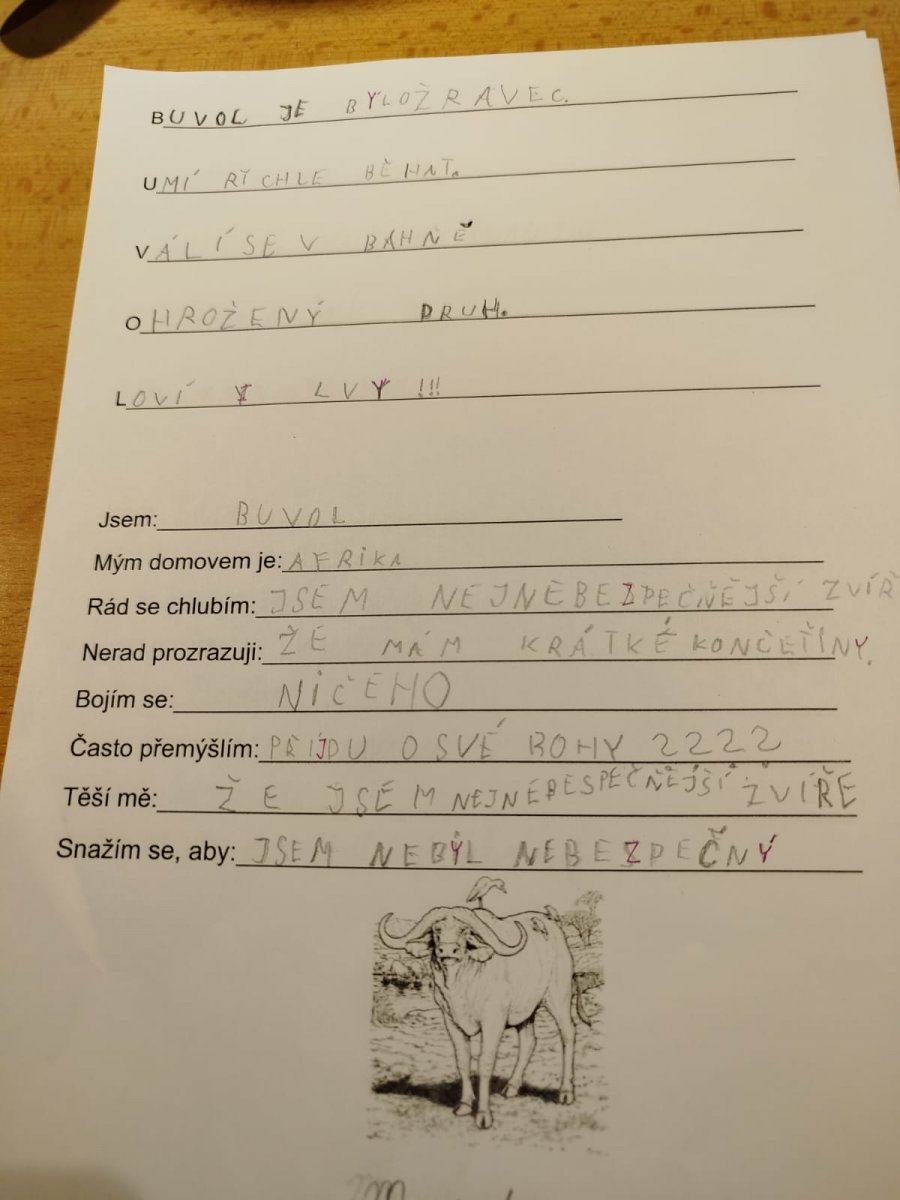 BUVOL JE BÝLOŽRAVEC.
UMÍ RYCHLE BĚHAT.
VÁLÍ SE V BAHNĚ
OHROŽENÝ DRUH.
LOVÍ I LVY !!!
Jsem: BUVOL
Mým domovem je: AFRIKA
Rád se chlubím: JSEM NEJNEBEZPEČNĚJŠÍ ZVÍŘ
Nerad prozrazuji: ŽE MÁM KRÁTKÉ KONČETINY.
Bojím se: NIČEHO
Často přemýšlím: PŘIJDU O SVÉ ROHY ????
Těší mě: ŽE JSEM NEJNEBESPEČNĚJŠÍ ZVÍŘE
Snažím se, aby: JSEM NEBYL NEBEZPEČNÝ